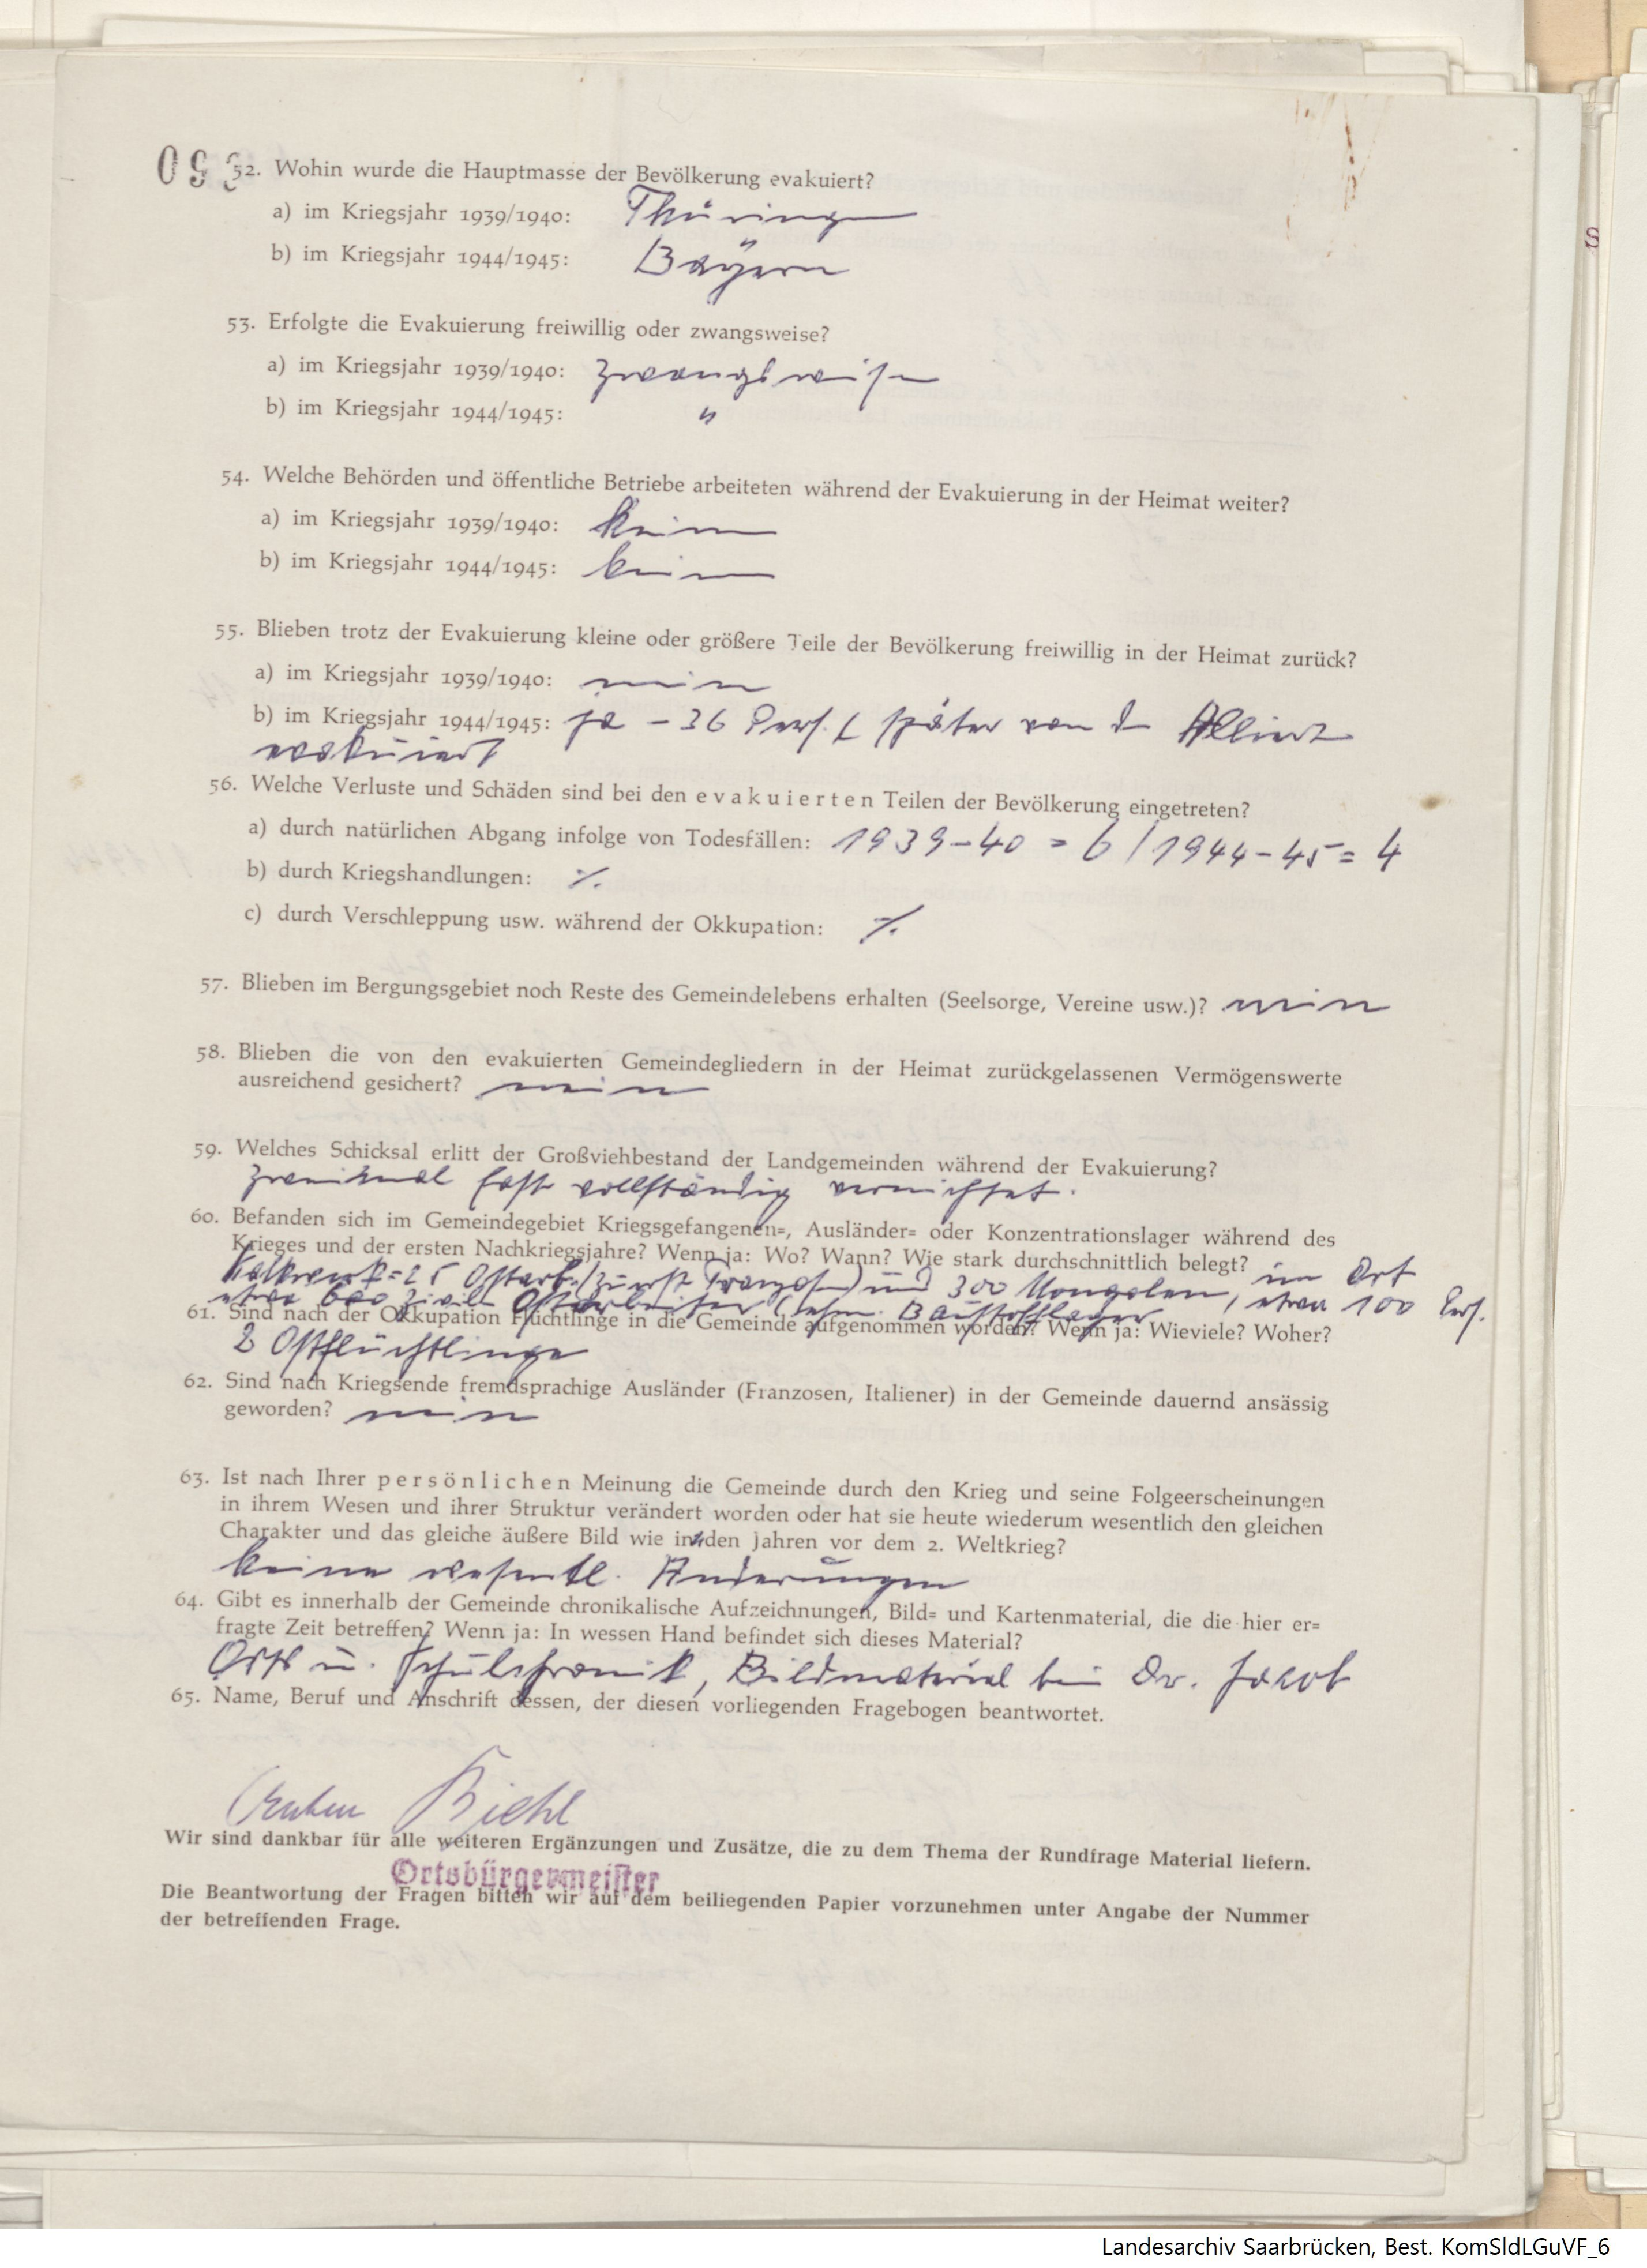 52. Wohin wurde die Hauptmasse der Bevölkerung evakuiert?
a) im Kriegsjahr 1939/1940: Thüringen
b) im Kriegsjahr 1944/1945: Bayern
53. Erfolgte die Evakuierung freiwillig oder zwangsweise?
a) im Kriegsjahr 1939/1940: zwangsweise
b) im Kriegsjahr 1944/1945: "
54. Welche Behörden und öffentliche Betriebe arbeiteten während der Evakuierung in der Heimat weiter?
a) im Kriegsjahr 1939/1940: keine
b) im Kriegsjahr 1944/1945: keine
55. Blieben trotz der Evakuierung kleine oder größere Teile der Bevölkerung freiwillig in der Heimat zurück?
a) im Kriegsjahr 1939/1940: nein
b) im Kriegsjahr 1944/1945: ja – 36 Pers. ( später von den Alliierten
evakuiert
56. Welche Verluste und Schäden sind bei den evakuierten Teilen der Bevölkerung eingetreten?
a) durch natürlichen Abgang infolge von Todesfällen: 1939-40 = 6 / 1944-45 = 4
b) durch Kriegshandlungen: ·/.
c) durch Verschleppung usw. während der Okkupation: ·/.
57. Blieben im Bergungsgebiet noch Reste des Gemeindelebens erhalten (Seelsorge, Vereine usw.)? nein
58. Blieben die von den evakuierten Gemeindegliedern in der Heimat zurückgelassenen Vermögenswerte
ausreichend gesichert? nein
59. Welches Schicksal erlitt der Großviehbestand der Landgemeinden während der Evakuierung?
zweimal fast vollständig vernichtet.
60. Befanden sich im Gemeindegebiet Kriegsgefangenen=, Ausländer= oder Konzentrationslager während des
Krieges und der ersten Nachkriegsjahre? Wenn ja: Wo? Wann? Wie stark durchschnittlich belegt? im Ort
Kalkwerk = 25 Ostarb. (zuerst Franzosen) und 300 Mongolen, etwa 100 Pers.
etwa 600 zivile Ostarbeiter (ehem. Baustofflager
61. Sind nach der Okkupation Flüchtlinge in die Gemeinde aufgenommen worden? Wenn ja: Wieviele? Woher?
2 Ostflüchtlinge
62. Sind nach Kriegsende fremdsprachige Ausländer (Franzosen, Italiener) in der Gemeinde dauernd ansässig
geworden? nein
63. Ist nach Ihrer persönlichen Meinung die Gemeinde durch den Krieg und seine Folgeerscheinungen
in ihrem Wesen und ihrer Struktur verändert worden oder hat sie heute wiederum wesentlich den gleichen
Charakter und das gleiche äußere Bild wie in den Jahren vor dem 2. Weltkrieg?
keine wesentl. Änderungen
64. Gibt es innerhalb der Gemeinde chronikalische Aufzeichnungen, Bild= und Kartenmaterial, die die hier er=
fragte Zeit betreffen? Wenn ja: In wessen Hand befindet sich dieses Material?
Orts u. Schulchronik, Bildmaterial bei Dr. Jacob
65. Name, Beruf und Anschrift dessen, der diesen vorliegenden Fragebogen beantwortet.
Biehl
Wir sind dankbar für alle weiteren Ergänzungen und Zusätze, die zu dem Thema der Rundfrage Material liefern.
Ortsbürgermeister
Die Beantwortung der Fragen bitten wir auf dem beiliegenden Papier vorzunehmen unter Angabe der Nummer
der betreffenden Frage.
Landesarchiv Saarbrücken, Best. KomSldLGuVF_6